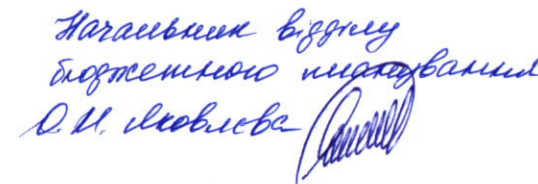 Начальник відділу
бюджетного планування
О.М. Яковлєва